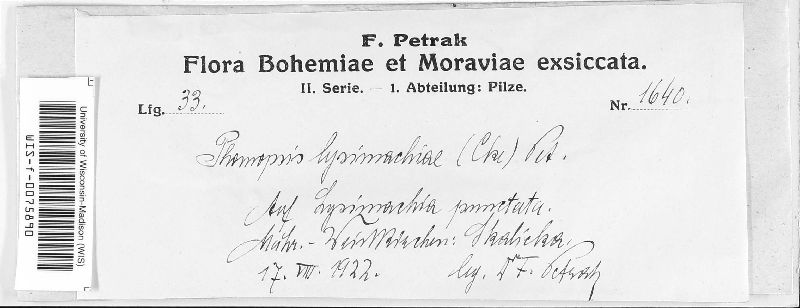 F. Petrak
Flora Bohemiae et Moraviae exsiccata.
II. Serie. — 1. Abteilung: Pilze.
Lfg. 33.
Nr. 1640.
Phomopsis lysimachiae (Cke) Pet.
Auf Lysimachia punctata.
Mähr.-Weisskirchen: Skalicka.
17. VII. 1922. leg. Dr F. Petrak
University of Wisconsin-Madison (WIS)
WIS-f-0075890